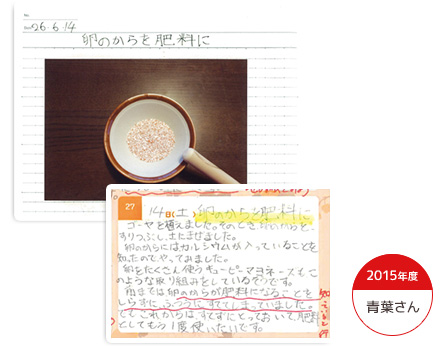 No.
Date 26・6・14
卵のからを肥料に
27
14日(土) 卵のからを肥料に
ゴーヤを植えました。そのとき、卵のからを、
すりつぶし、土にまぜました。
卵のからにはカルシウムが入っていることを
知ったのでやってみました。
卵をたくさん使うキューピーマヨネーズもこ
のような取り組みをしているそうです。
前までは卵のからが肥料になることを
しらずに、ふつうにすててしまっていました。
でもこれからはすてずにとっておいて、肥料
としてもう1度使いたいです。
2015年度
青葉さん